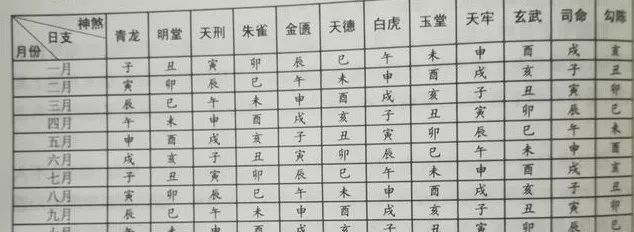 神煞
日支
月份 青龙 明堂 天刑 朱雀 金匮 天德 白虎 玉堂 天牢 玄武 司命 勾陈
一月 子 丑 寅 卯 辰 巳 午 未 申 酉 戌 亥
二月 寅 卯 辰 巳 午 未 申 酉 戌 亥 子 丑
三月 辰 巳 午 未 申 酉 戌 亥 子 丑 寅 卯
四月 午 未 申 酉 戌 亥 子 丑 寅 卯 辰 巳
五月 申 酉 戌 亥 子 丑 寅 卯 辰 巳 午 未
六月 戌 亥 子 丑 寅 卯 辰 巳 午 未 申 酉
七月 子 丑 寅 卯 辰 巳 午 未 申 酉 戌 亥
八月 寅 卯 辰 巳 午 未 申 酉 戌 亥 子 丑
九月 辰 巳 午 未 申 酉 戌 亥 子 丑 寅 卯
亥 子 丑 寅 卯 辰 巳